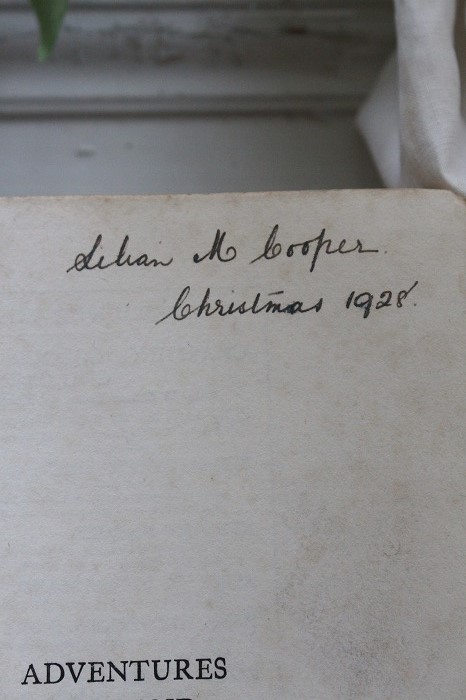 Lilian M Cooper.
Christmas 1928.
ADVENTURES